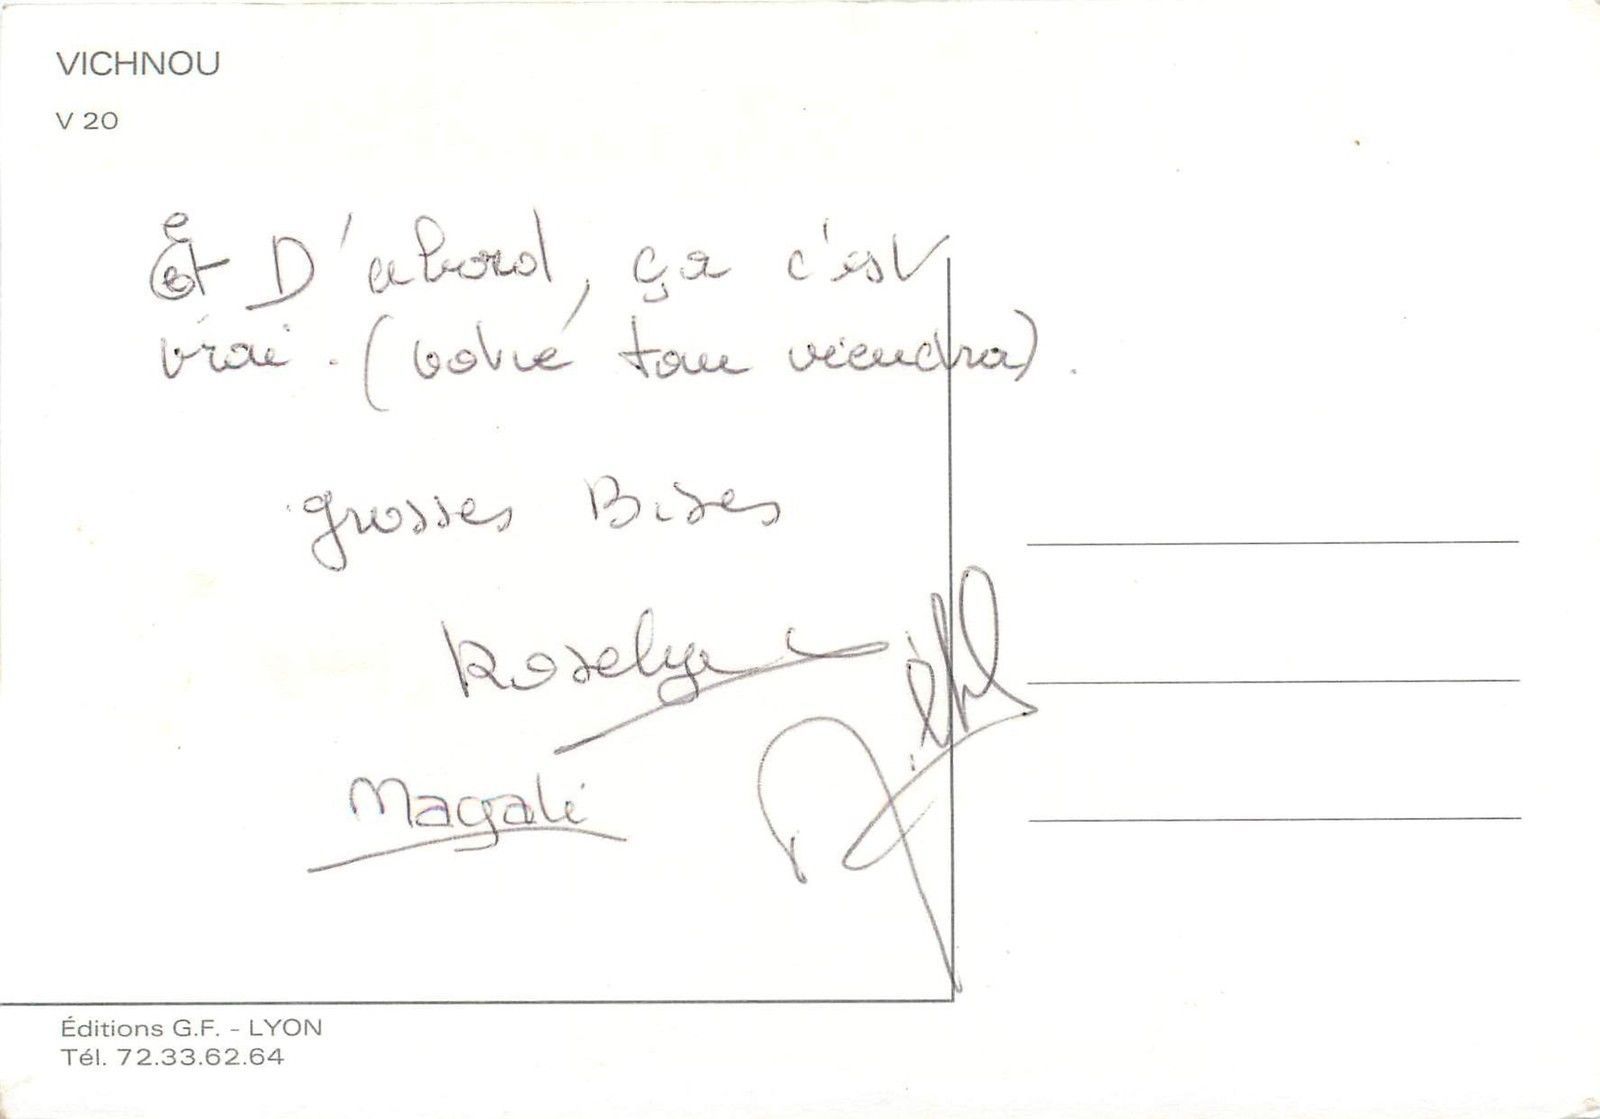 VICHNOU
V 20
Et D'abord, ça c'est
vrai. (votre tour viendra).
grosses Bises
Roselyne
Magali
Éditions G.F. - LYON
Tél. 72.33.62.64